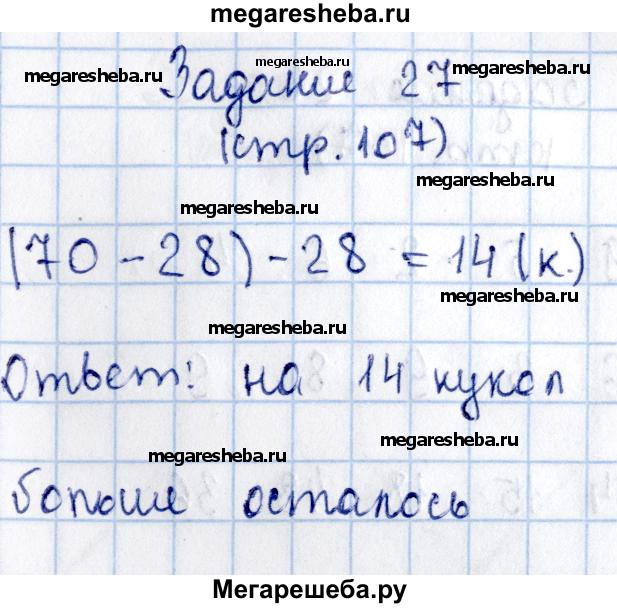 megaresheba.ru
megaresheba.ru
megaresheba.ru
megaresheba.ru
Задание 27
(стр. 107)
megaresheba.ru
megaresheba.ru
(70 - 28) - 28 = 14 (к.)
megaresheba.ru
megaresheba.ru
Ответ: на 14 кукол
megaresheba.ru
megaresheba.ru
больше осталось
megaresheba.ru
megaresheba.ru
Мегарешеба.ру